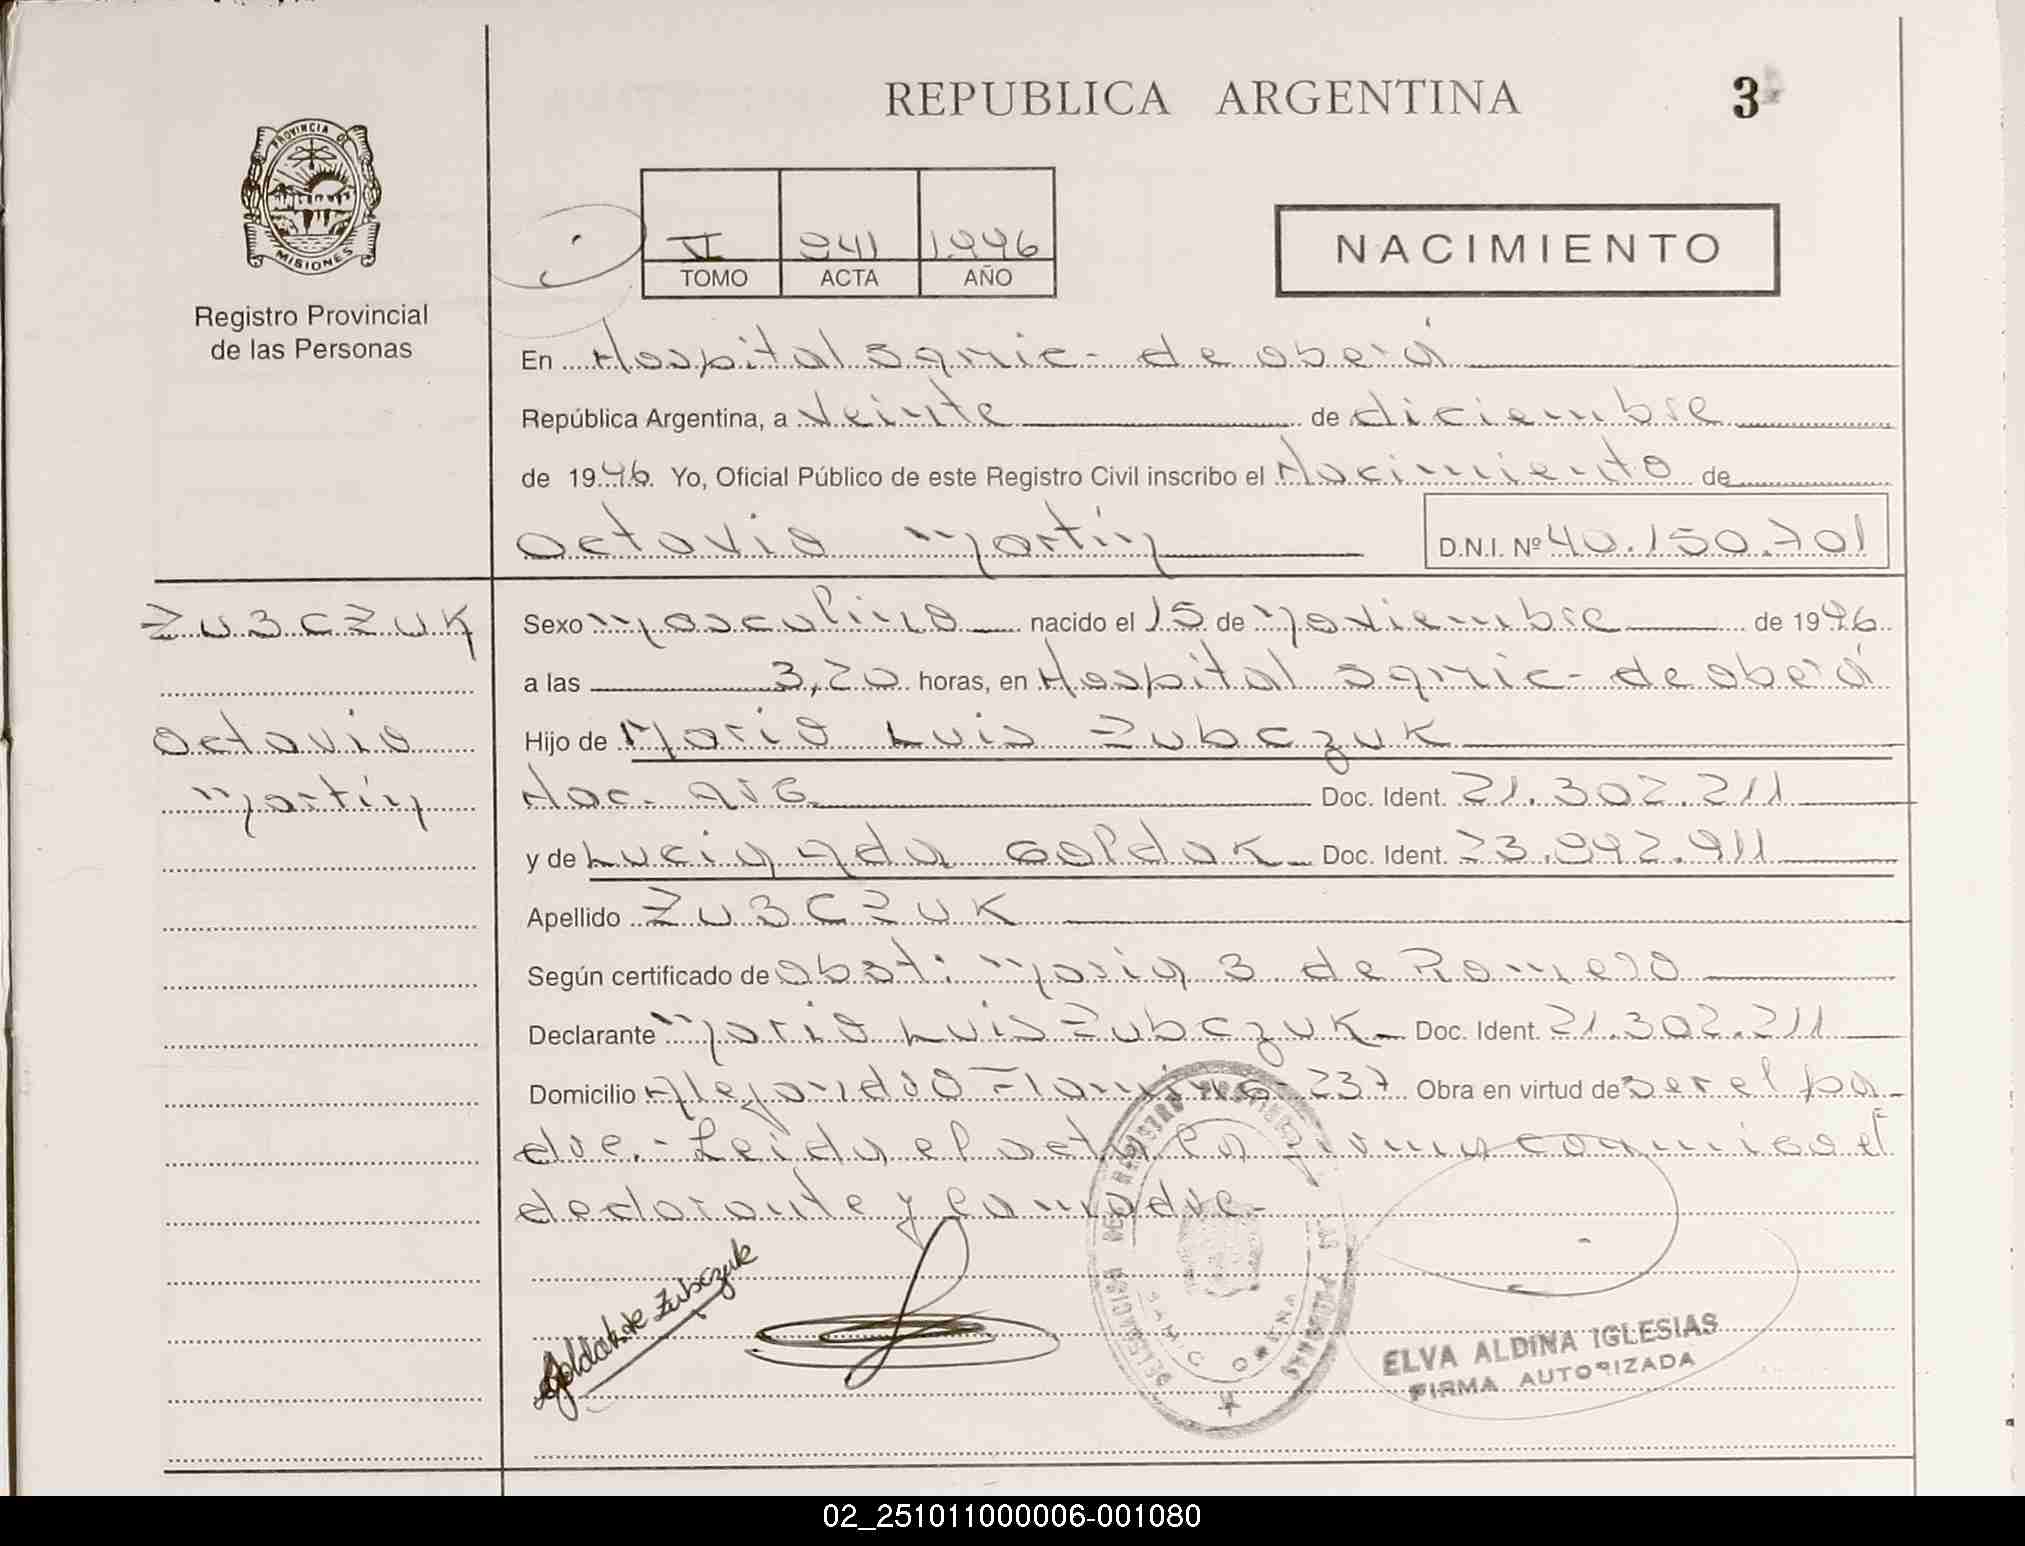 REPUBLICA ARGENTINA
3
PROVINCIA DE
MISIONES
Registro Provincial
de las Personas
VI 941 1996
TOMO ACTA AÑO
NACIMIENTO
En Hospital samic- de oberá
República Argentina, a Veinte de diciembre
de 1996. Yo, Oficial Público de este Registro Civil inscribo el Nacimiento de
Octavio Martín D.N.I. Nº 40.150.701
ZUBCZUK
Octavio
Martín
Sexo Masculino nacido el 15 de Noviembre de 1996
a las 3,20 horas, en Hospital samic- de oberá
Hijo de Mario Luis Zubczuk
Nac. arg Doc. Ident. 21.302.211
y de Lucia Goldak Doc. Ident. 23.942.911
Apellido ZUBCZUK
Según certificado de obst: Maria B de Romero
Declarante Mario Luis Zubczuk Doc. Ident. 21.302.211
Domicilio Alejandro 237 Obra en virtud de ser el pa-
dre.- Leida el acta la firma conmigo el
declarante y la madre.-
Goldak de Zubczuk
ELVA ALDINA IGLESIAS
FIRMA AUTORIZADA
02_251011000006-001080